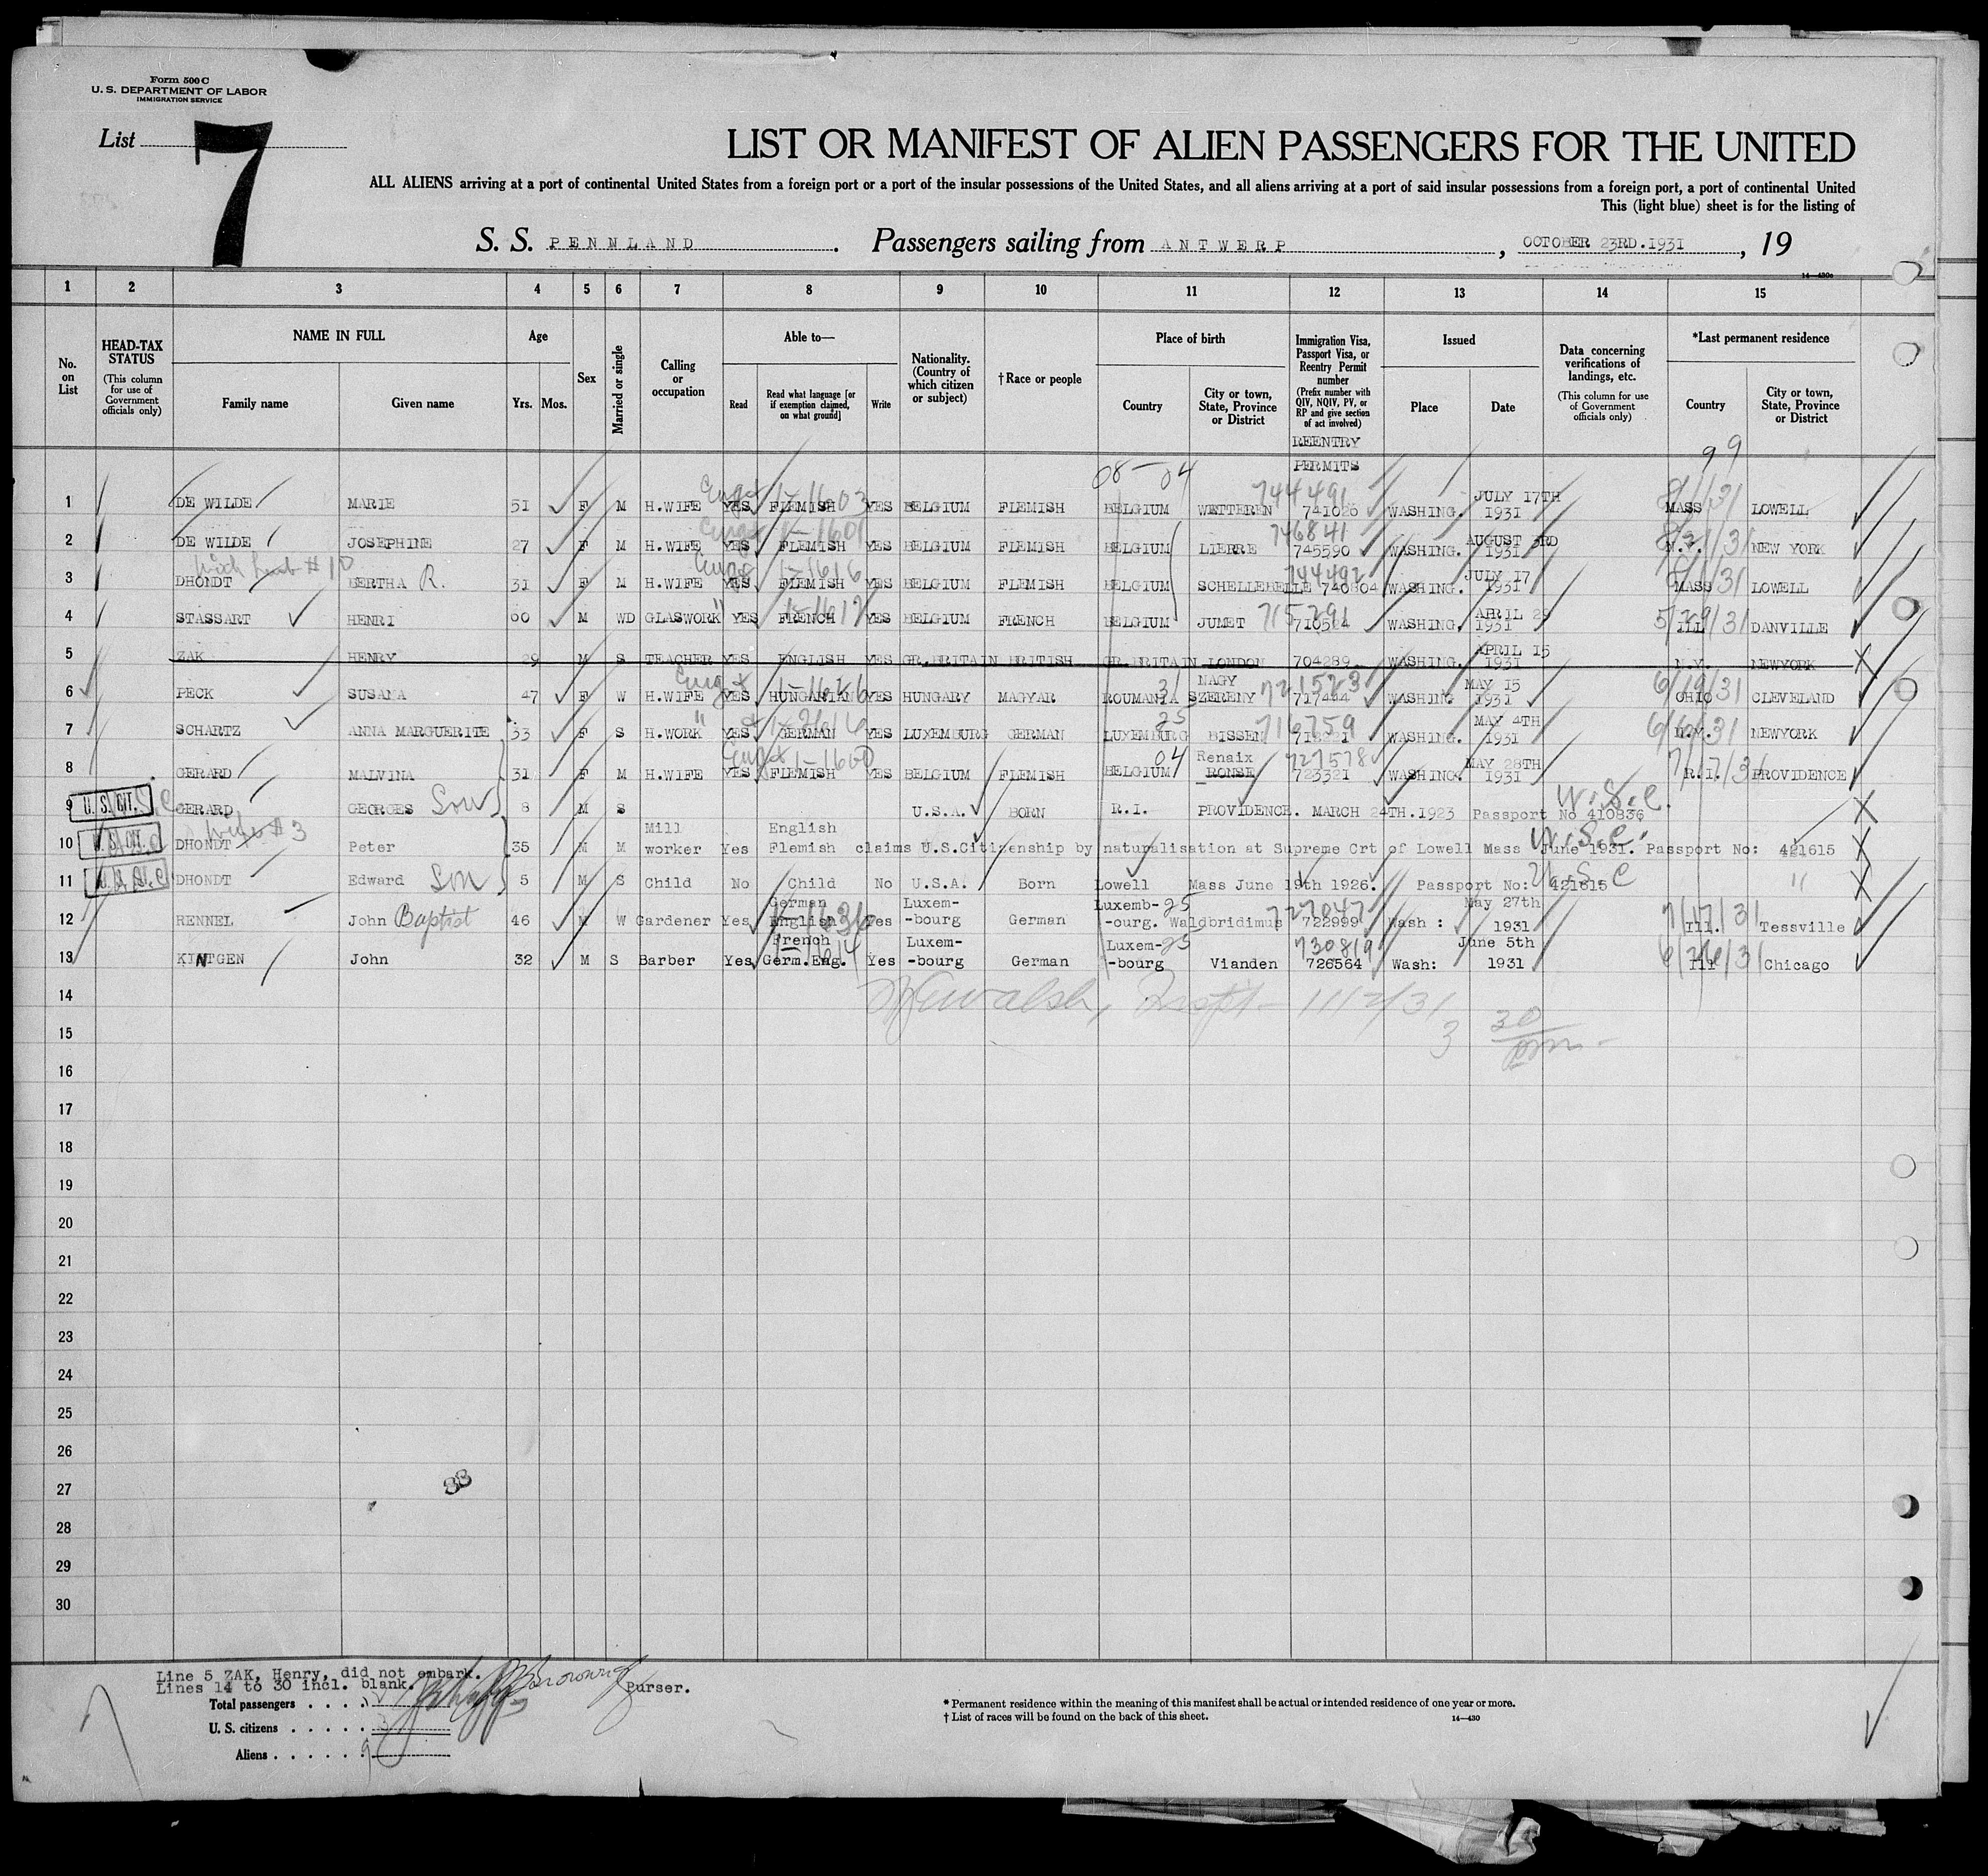 Form 500 C
U. S. DEPARTMENT OF LABOR
IMMIGRATION SERVICE
List 7
LIST OR MANIFEST OF ALIEN PASSENGERS FOR THE UNITED
ALL ALIENS arriving at a port of continental United States from a foreign port or a port of the insular possessions of the United States, and all aliens arriving at a port of said insular possessions from a foreign port, a port of continental United
This (light blue) sheet is for the listing of
S. S. PENNLAND. Passengers sailing from ANTWERP, OCTOBER 23RD.1931, 19
14—430c
1 2 3 4 5 6 7 8 9 10 11 12 13 14 15
No. on List
HEAD-TAX STATUS (This column for use of Government officials only)
NAME IN FULL Family name Given name
Age Yrs. Mos.
Sex
Married or single
Calling or occupation
Able to— Read Read what language [or if exemption claimed, on what ground] Write
Nationality. (Country of which citizen or subject)
†Race or people
Place of birth Country City or town, State, Province or District
Immigration Visa, Passport Visa, or Reentry Permit number (Prefix number with QIV, NQIV, PV, or RP and give section of act involved)
Issued Place Date
Data concerning verifications of landings, etc. (This column for use of Government officials only)
*Last permanent residence Country City or town, State, Province or District
REENTRY PERMITS
08-04 99
1 DE WILDE MARIE 51 F M H.WIFE YES FLEMISH 1-1603 YES BELGIUM FLEMISH BELGIUM WETTEREN 744491 741026 WASHING. JULY 17TH 1931 MASS LOWELL
2 DE WILDE JOSEPHINE 27 F M H.WIFE YES FLEMISH 1-1601 YES BELGIUM FLEMISH BELGIUM LIERRE 746841 745590 WASHING. AUGUST 3RD 1931 N.Y. NEW YORK
3 DHONDT BERTHA R. 31 F M H.WIFE YES FLEMISH 1-1616 YES BELGIUM FLEMISH BELGIUM SCHELLEBELLE 744492 740804 WASHING. JULY 17 1931 MASS LOWELL
4 STASSART HENRI 60 M WD GLASWORK YES FRENCH YES BELGIUM FRENCH BELGIUM JUMET 715291 WASHING. APRIL 29 1931 ILL DANVILLE
5 ZAK HENRY 29 M S TEACHER YES ENGLISH YES GR.BRITAIN BRITISH GR.BRITAIN LONDON 704289 WASHING. APRIL 15 1931 N.Y. NEWYORK
6 PECK SUSANA 47 F W H.WIFE YES HUNGARIAN YES HUNGARY MAGYAR ROUMANIA 31 NAGY SZERENY 721523 717444 WASHING. MAY 15 1931 OHIO CLEVELAND
7 SCHARTZ ANNA MARGUERITE 33 F S H.WORK " YES GERMAN YES LUXEMBURG GERMAN LUXEMBURG 25 BISSEN 716759 WASHING. MAY 4TH 1931 N.Y. NEWYORK
8 GERARD MALVINA 31 F M H.WIFE YES FLEMISH 1-1600 YES BELGIUM FLEMISH BELGIUM 04 Renaix RONSE 727578 723321 WASHING. MAY 28TH 1931 R.I. PROVIDENCE
9 U.S. CIT. GERARD GEORGES Son 8 M S U.S.A. BORN R.I. PROVIDENCE. MARCH 24TH.1923 Passport No 410836 U.S.C.
wife #3
10 U.S. CIT. DHONDT Peter 35 M M Mill worker Yes English Flemish claims U.S.Citizenship by naturalisation at Supreme Crt of Lowell Mass June 1931. Passport No: 421615 U.S.C.
11 DHONDT Edward Son 5 M S Child No Child No U.S.A. Born Lowell Mass June 19th 1926. Passport No: 421615 U.S.C "
12 RENNEL John Baptist 46 M W Gardener Yes German English 1-1636 Yes Luxem- -bourg German Luxemb- -ourg. 25 Waldbridimus 727047 722999 Wash : May 27th 1931 7/17/31 Ill. Tessville
13 KINTGEN John 32 M S Barber Yes French Germ.Eng. Yes Luxem- -bourg German Luxem- -bourg 25 Vianden 730819 726564 Wash: June 5th 1931 6/26/31 Ill Chicago
14 Walsh, Inspt - 11/2/31
15 3 30/pm
16
17
18
19
20
21
22
23
24
25
26
27
28
29
30
Line 5 ZAK, Henry, did not embark.
Lines 14 to 30 incl. blank.
Purser.
Total passengers . . . .
U. S. citizens . . . . . 3
Aliens . . . . . . 9
* Permanent residence within the meaning of this manifest shall be actual or intended residence of one year or more.
† List of races will be found on the back of this sheet.
14—430